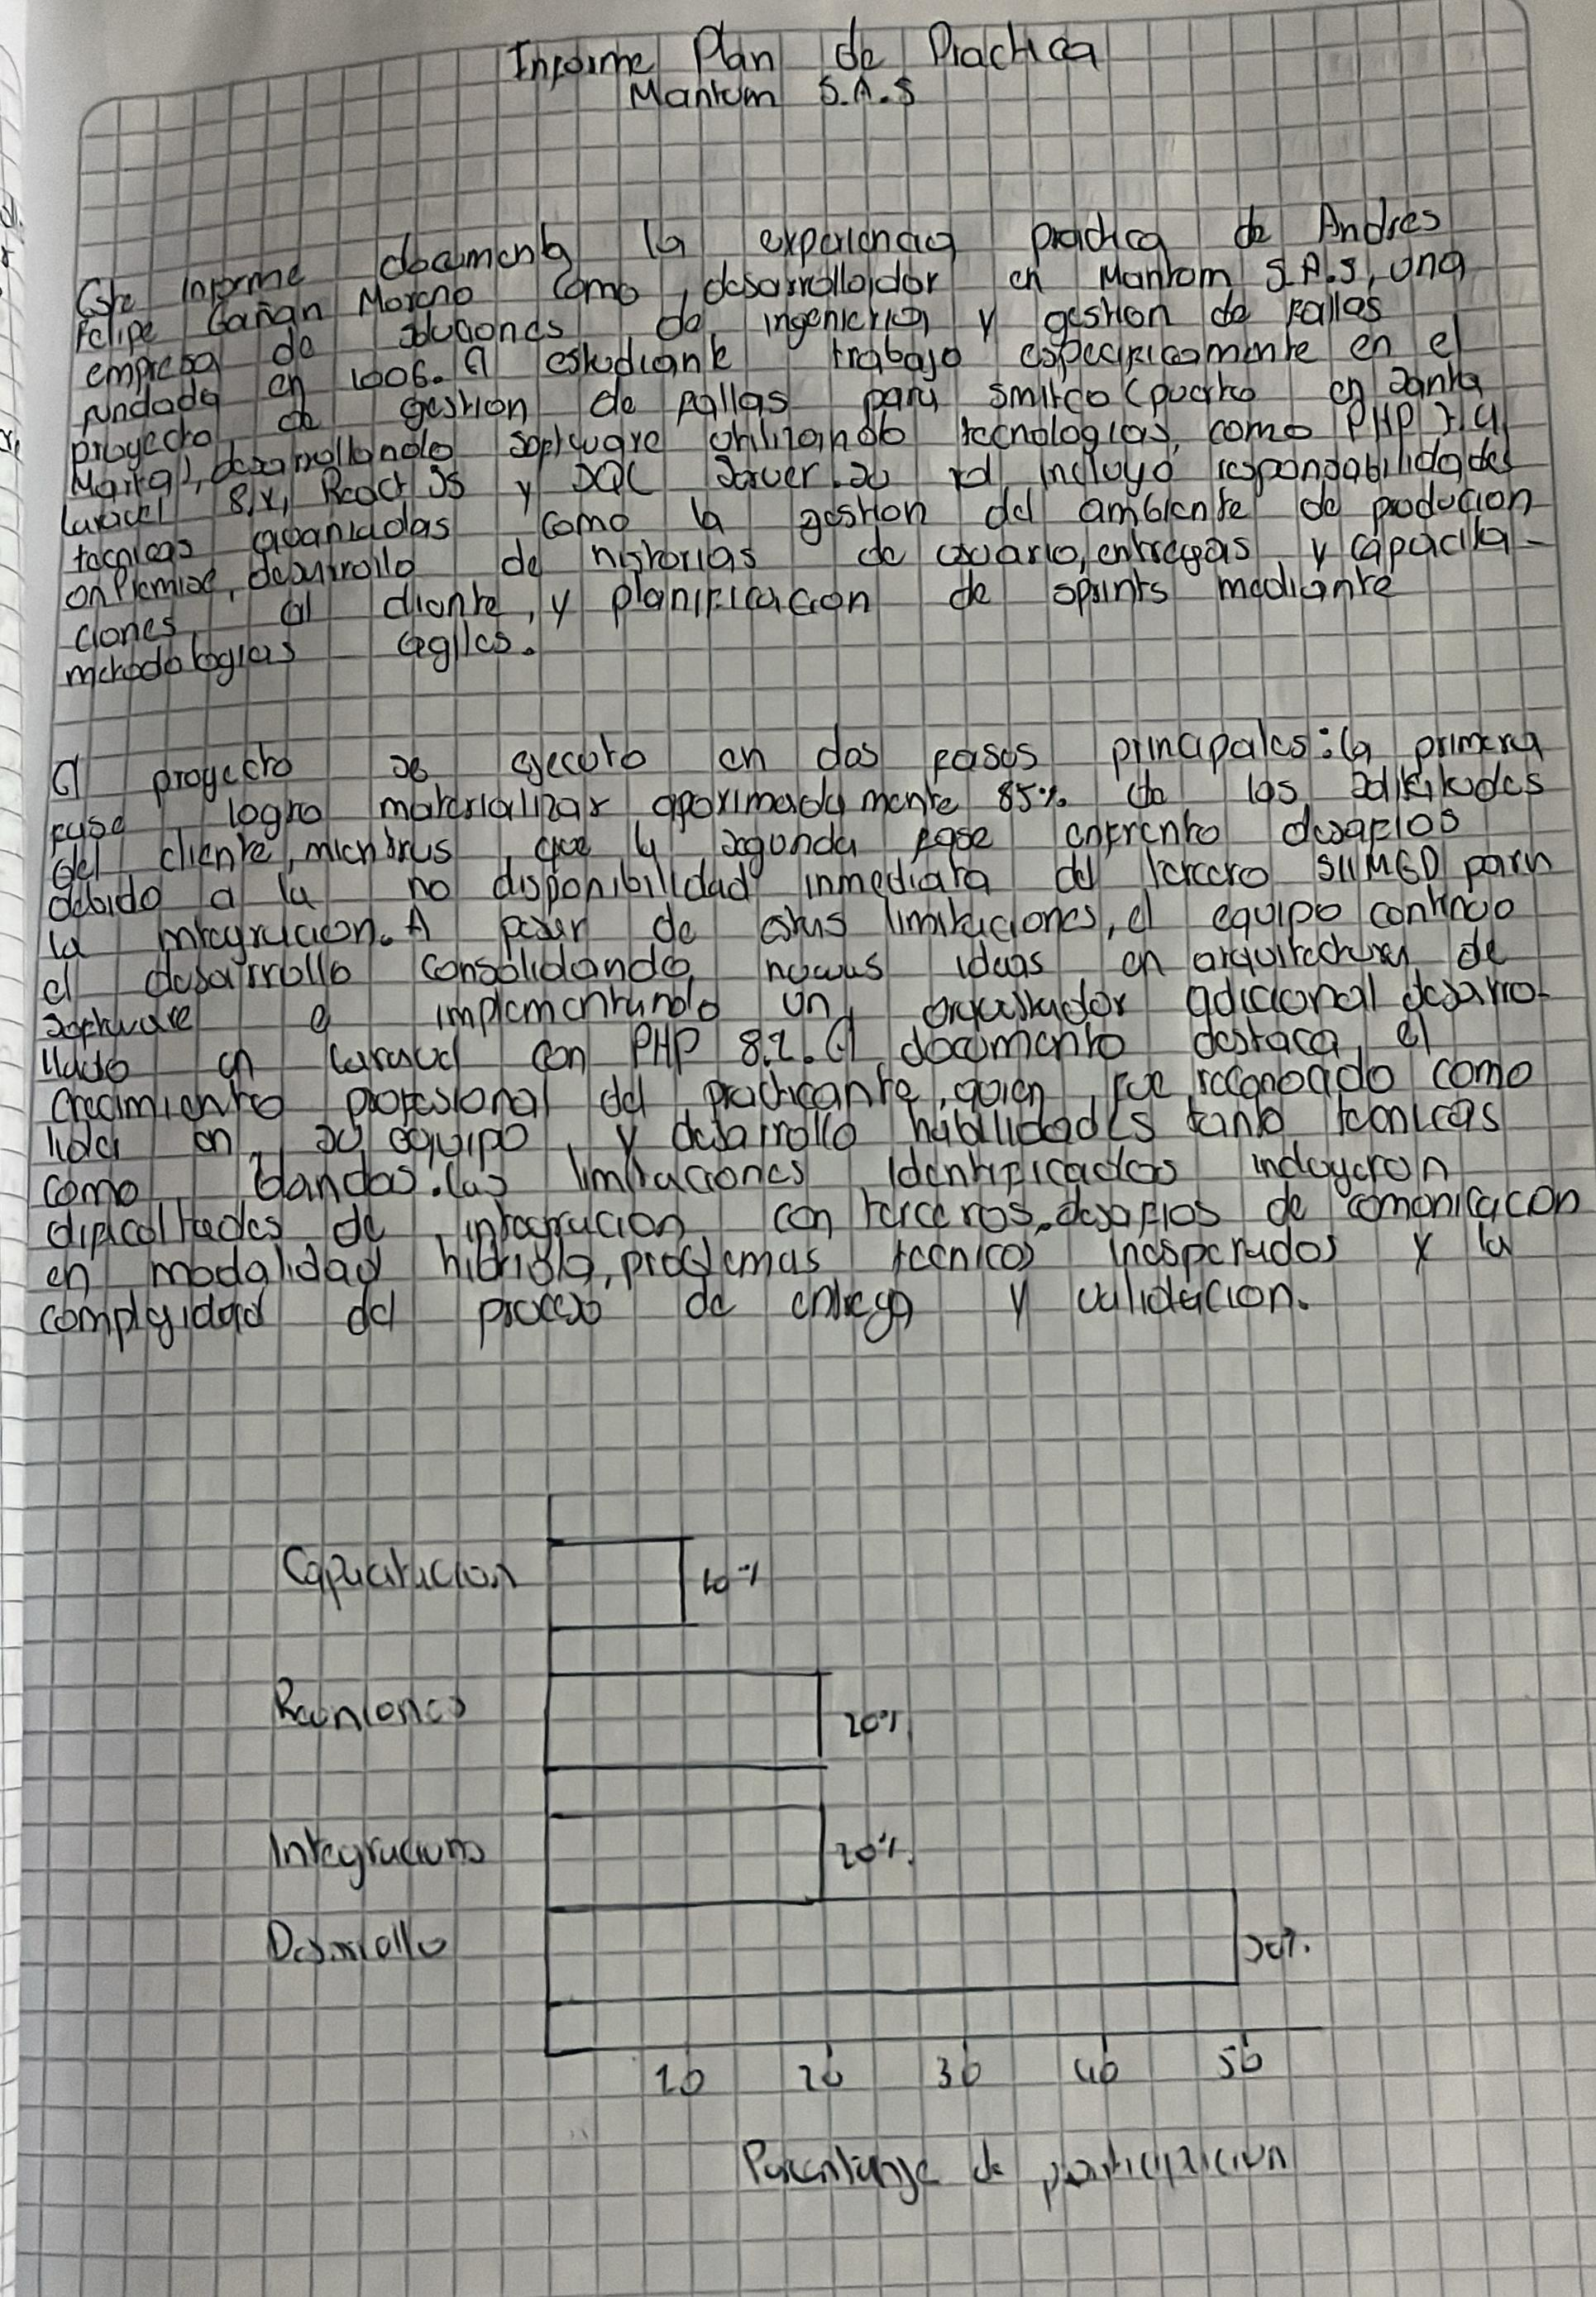 Informe Plan de Practica
Mantum S.A.S
Este informe documenta la experiencia practica de Andres
Felipe Gañan Moreno como desarrollador en Mantum S.A.S, una
empresa de soluciones de ingenieria y gestion de fallas
fundada en 2006. El estudiante trabajo especificamente en el
proyecto de gestion de fallas para smitco (puerto en Santa
Marta), desarrollando software utilizando tecnologias, como PHP 7.4,
Laravel 8.x, React JS y SQL Server. su rol incluyo responsabilidades
tecnicas avanzadas como la gestion del ambiente de producion
on Premise, desarrollo de historias de usuario, entregas y capacita-
ciones al cliente, y planificacion de sprints mediante
metodologias agiles.
El proyecto se ejecuto en dos fases principales: la primera
fase logro materializar aproximadamente 85% de las solicitudes
del cliente, mientras que la segunda fase enfrento desafios
debido a la no disponibilidad inmediata del tercero para
la integracion. A pesar de estas limitaciones, el equipo continuo
el desarrollo consolidando nuevas ideas en arquitectura de
software e implementando un orquestador adicional desarro-
llado en Laravel con PHP 8.2. El documento destaca el
crecimiento profesional del practicante, quien fue reconocido como
lider en su equipo y desarrollo habilidades tanto tecnicas
como blandas. Las limitaciones identificadas incluyeron
dificultades de integracion con terceros, desafios de comonicacion
en modalidad hibrida, problemas tecnicos inesperados y la
complejidad del proceso de entrega y validacion.
Capacitacion 10%
Reuniones 20%
Integracions 20%.
Desarrollo 50%.
10 20 30 40 50
Porcentanje de participacion